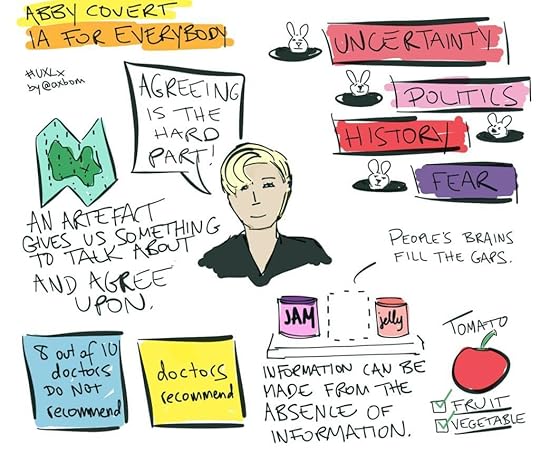 ABBY COVERT
IA FOR EVERYBODY
#UXLx
by @axbom
AGREEING
IS THE
HARD
PART!
UNCERTAINTY
POLITICS
HISTORY
FEAR
AN ARTEFACT
GIVES US SOMETHING
TO TALK ABOUT
AND AGREE
UPON.
PEOPLE'S BRAINS
FILL THE GAPS.
JAM
jelly
INFORMATION CAN BE
MADE FROM THE
ABSENCE OF
INFORMATION.
8 out of 10
doctors
DO NOT
recommend
doctors
recommend
TOMATO
FRUIT
VEGETABLE